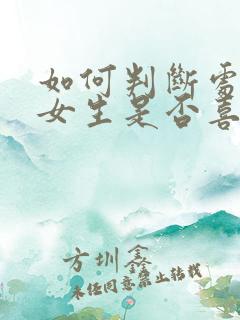 如何判断一个
女生是否喜
方圳鑫
未经同意禁止转载